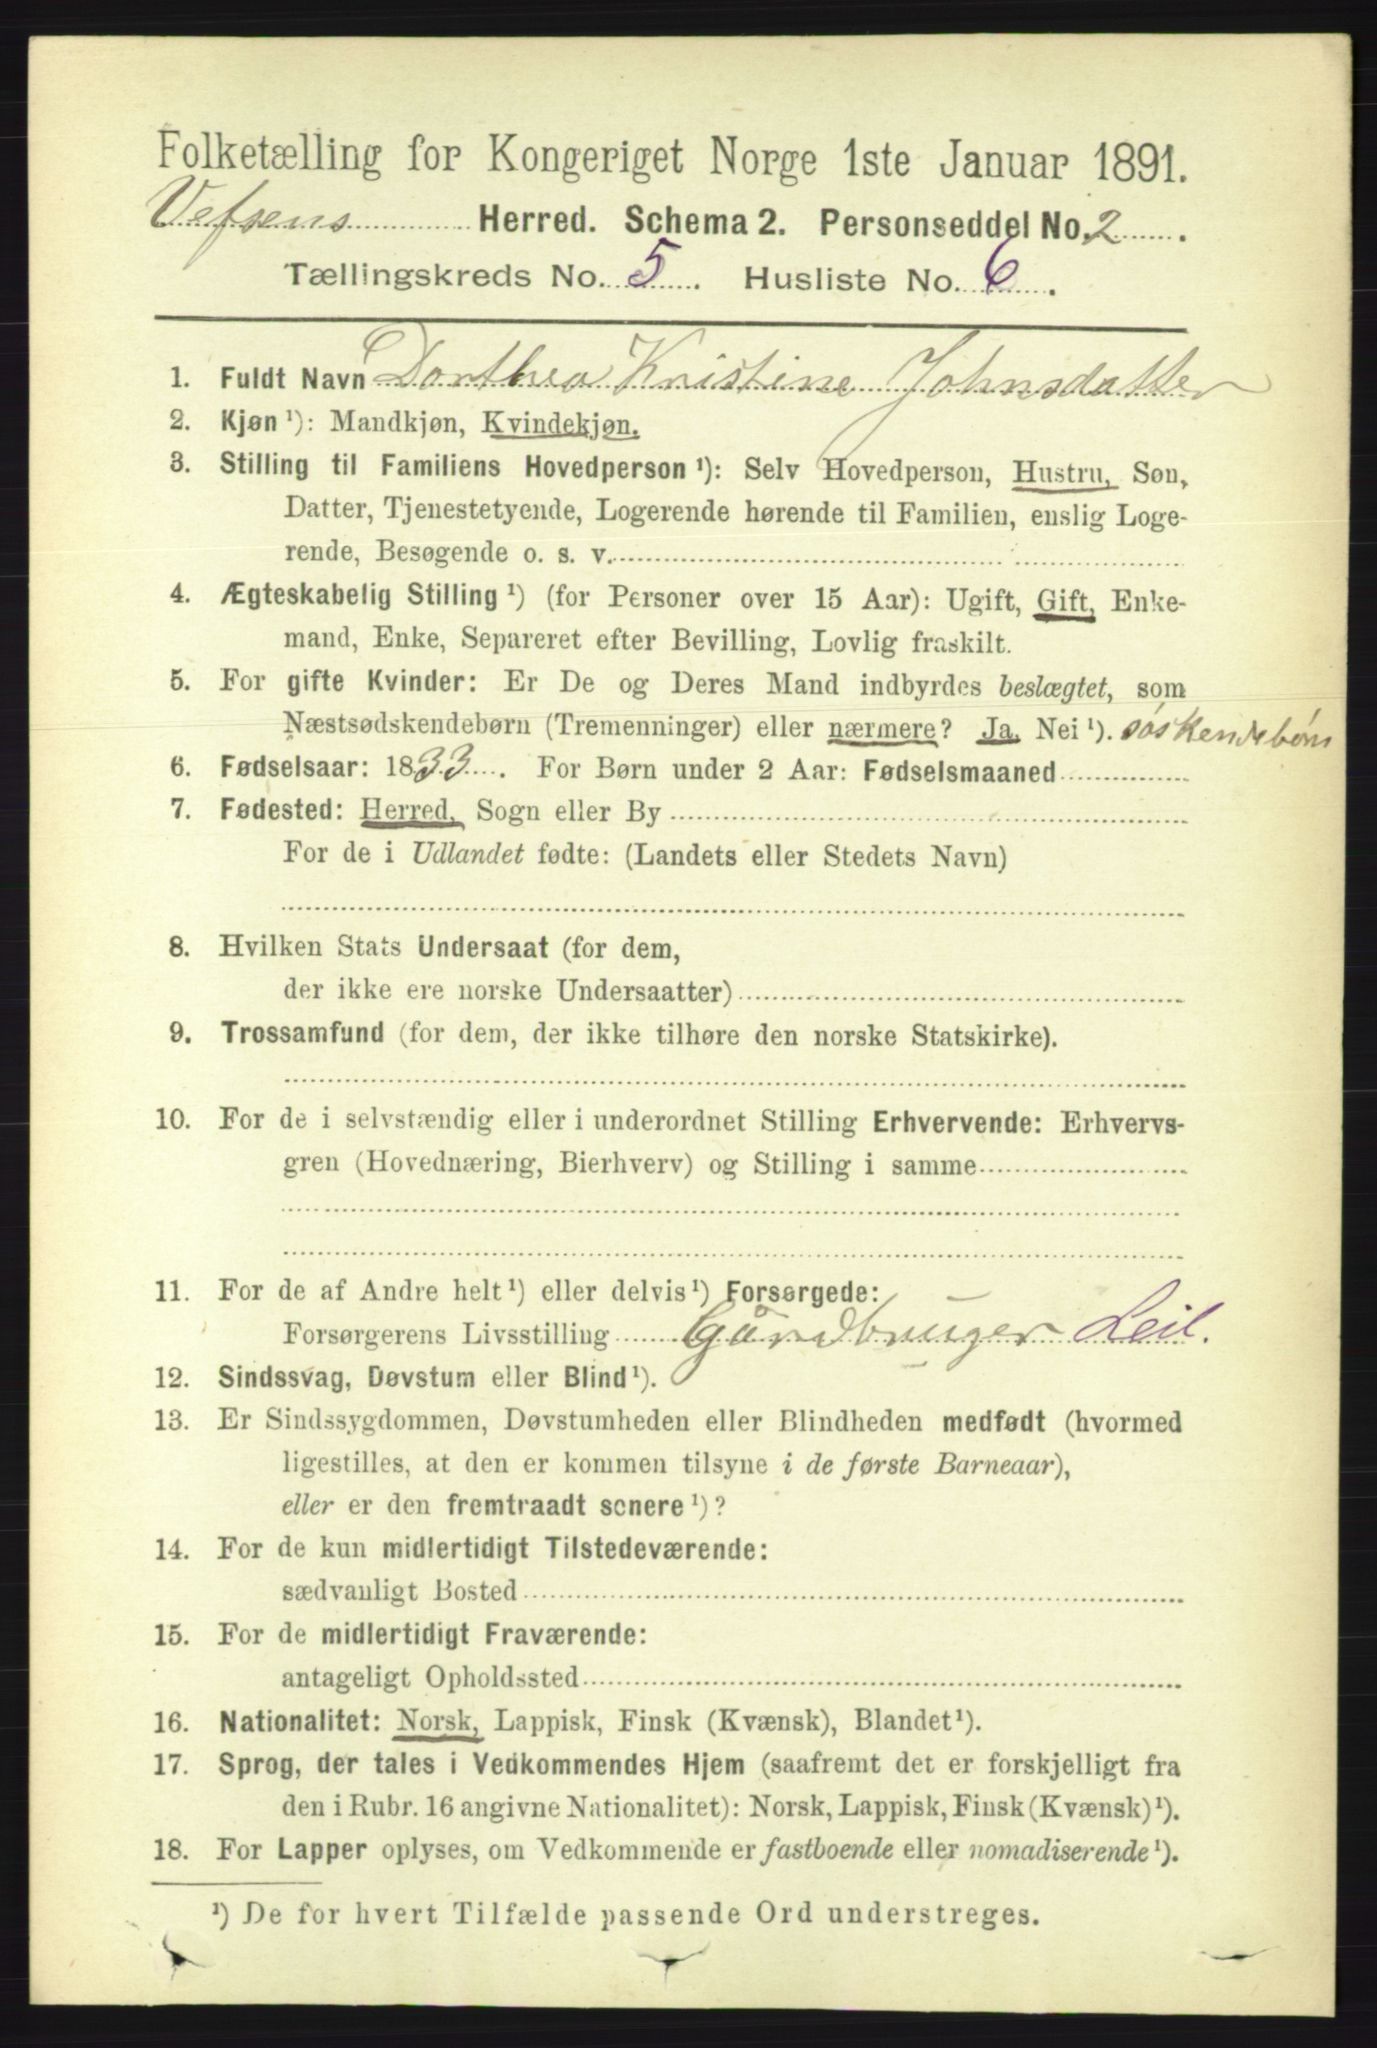 Folketælling for Kongeriget Norge 1ste Januar 1891.
Vefsens Herred. Schema 2. Personseddel No. 2.
Tællingskreds No. 5. Husliste No. 6.
1. Fuldt Navn Dorthea Kristine Johnsdatter
2. Kjøn ¹): Mandkjøn, Kvindekjøn.
3. Stilling til Familiens Hovedperson ¹): Selv Hovedperson, Hustru, Søn,
Datter, Tjenestetyende, Logerende hørende til Familien, enslig Loge-
rende, Besøgende o. s. v.
4. Ægteskabelig Stilling ¹) (for Personer over 15 Aar): Ugift, Gift, Enke-
mand, Enke, Separeret efter Bevilling, Lovlig fraskilt.
5. For gifte Kvinder: Er De og Deres Mand indbyrdes beslægtet, som
Næstsødskendebørn (Tremenninger) eller nærmere? Ja, Nei ¹). søskendebørn
6. Fødselsaar: 1833. For Børn under 2 Aar: Fødselsmaaned
7. Fødested: Herred, Sogn eller By
For de i Udlandet fødte: (Landets eller Stedets Navn)
8. Hvilken Stats Undersaat (for dem,
der ikke ere norske Undersaatter)
9. Trossamfund (for dem, der ikke tilhøre den norske Statskirke).
10. For de i selvstændig eller i underordnet Stilling Erhvervende: Erhvervs-
gren (Hovednæring, Bierhverv) og Stilling i samme
11. For de af Andre helt ¹) eller delvis ¹) Forsørgede:
Forsørgerens Livsstilling Gårdbruger Leil.
12. Sindssvag, Døvstum eller Blind ¹).
13. Er Sindssygdommen, Døvstumheden eller Blindheden medfødt (hvormed
ligestilles, at den er kommen tilsyne i de første Barneaar),
eller er den fremtraadt senere ¹)?
14. For de kun midlertidigt Tilstedeværende:
sædvanligt Bosted
15. For de midlertidigt Fraværende:
antageligt Opholdssted
16. Nationalitet: Norsk, Lappisk, Finsk (Kvænsk), Blandet ¹).
17. Sprog, der tales i Vedkommendes Hjem (saafremt det er forskjelligt fra
den i Rubr. 16 angivne Nationalitet): Norsk, Lappisk, Finsk (Kvænsk) ¹).
18. For Lapper oplyses, om Vedkommende er fastboende eller nomadiserende ¹).
¹) De for hvert Tilfælde passende Ord understreges.